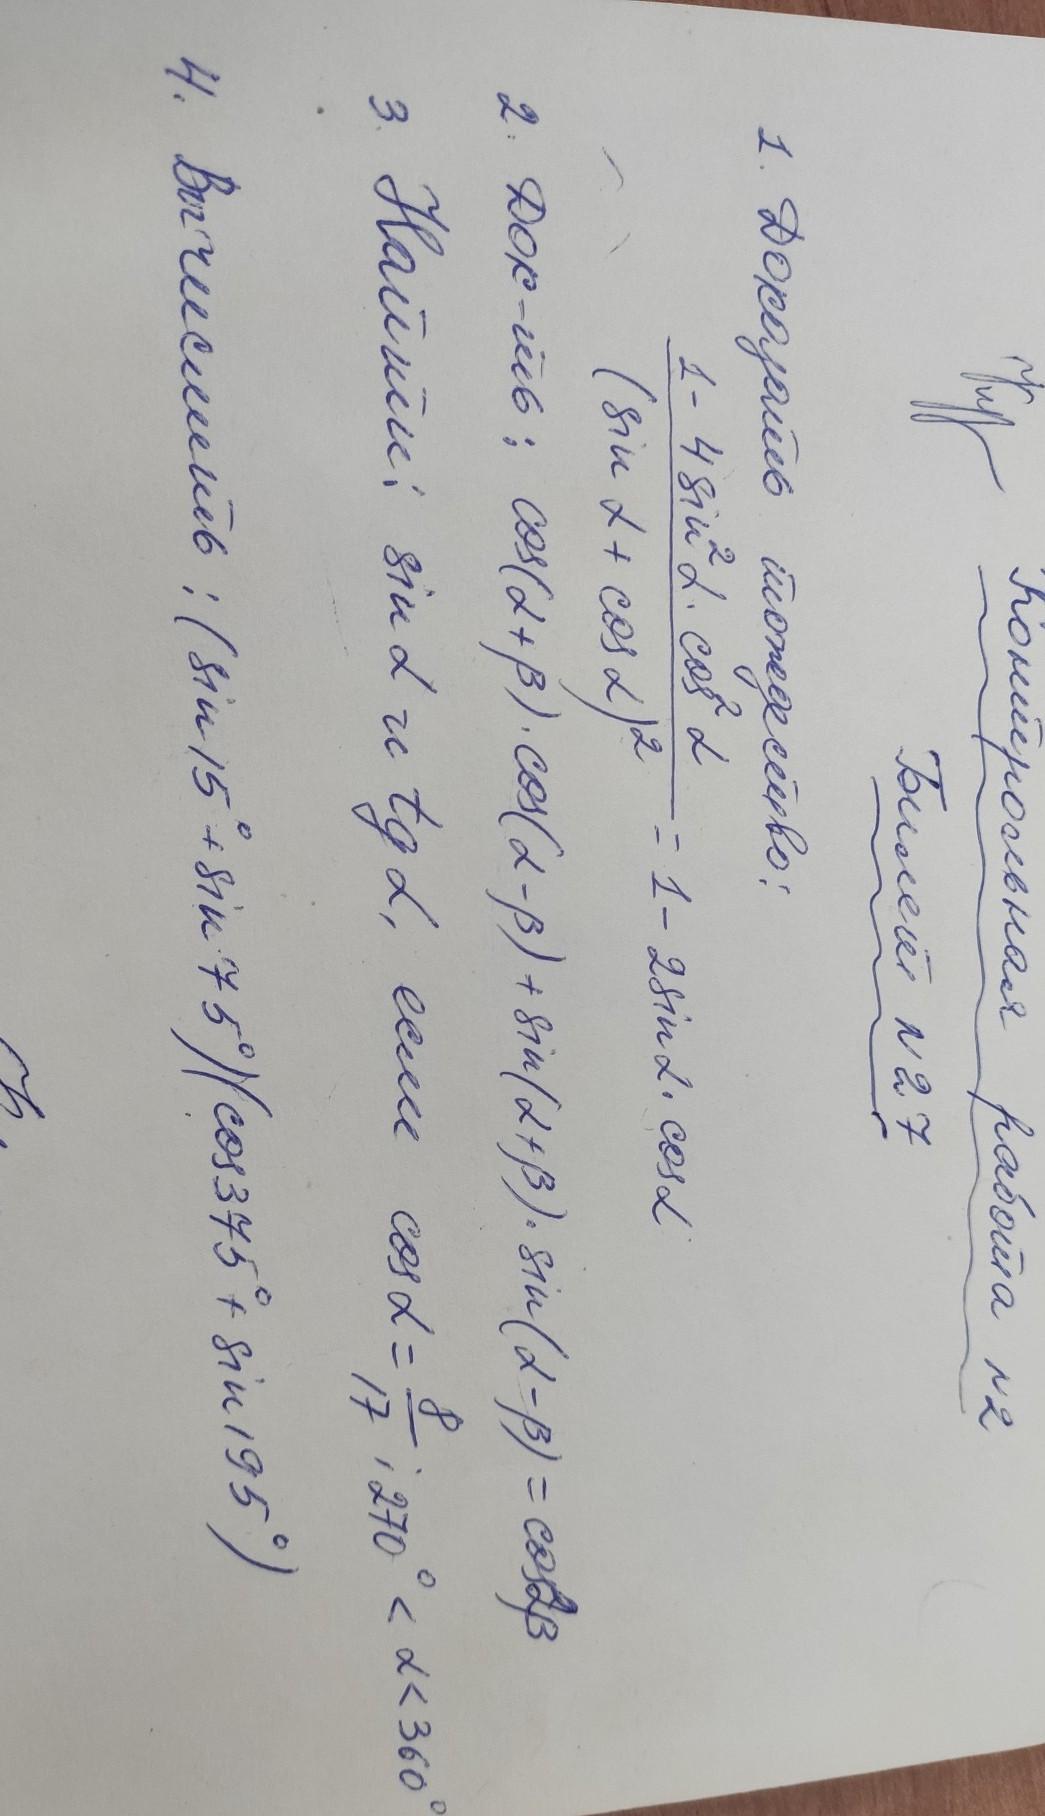 Контрольная работа №2
Билет №27
1. Доказать тождество:
(1 - 4sin²α · cos²α) / (sin α + cos α)² = 1 - 2sinα · cosα
2. Док-ть: cos(α+β) · cos(α-β) + sin(α+β) · sin(α-β) = cos2β
3. Найти: sin α и tg α, если cos α = 8/17; 270° < α < 360°
4. Вычислить: (sin 15° + sin 75°)(cos 375° + sin 195°)